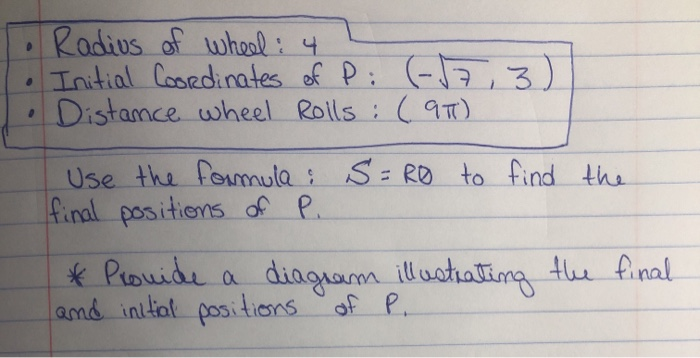 • Radius of wheel: 4
• Initial Coordinates of P: (-√7, 3)
• Distance wheel Rolls: (9π)
Use the formula: S = RØ to find the
final positions of P.
* Provide a diagram illustrating the final
and initial positions of P.